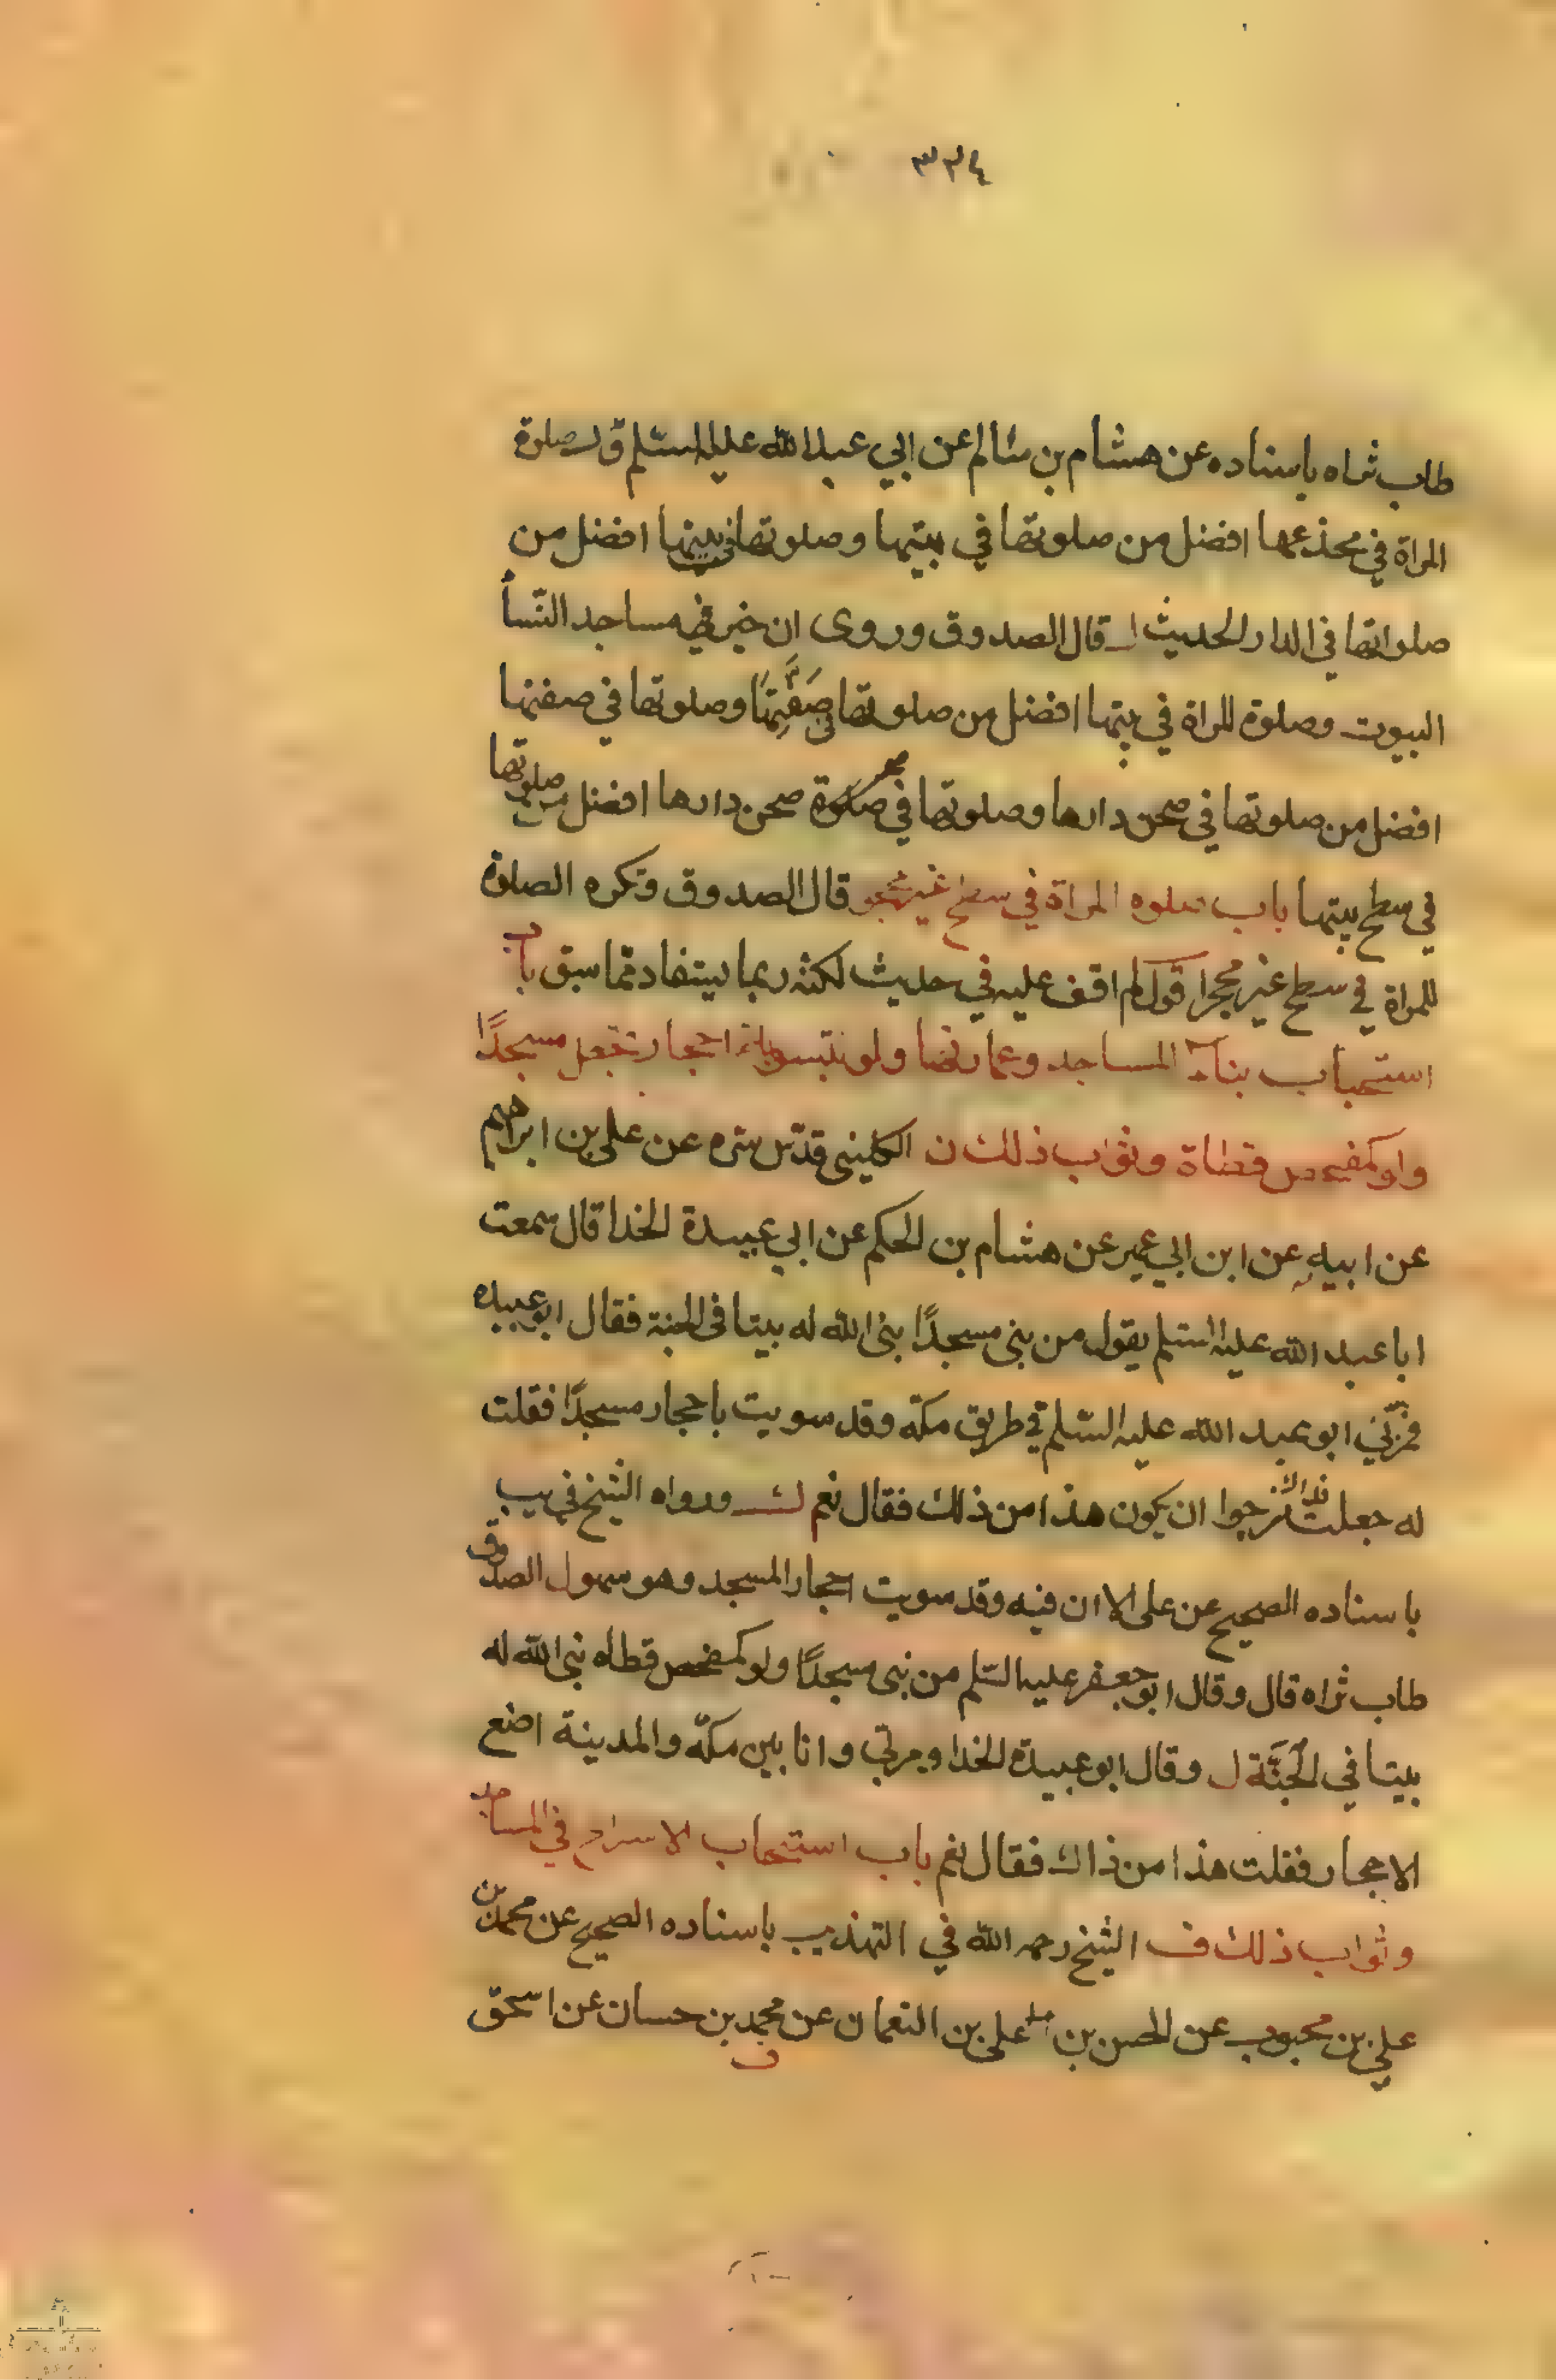 ٣٣٤
طاب ثراه باسناده عن هشام بن سالم عن ابي عبد الله عليه السّلم ق‍ال صلوة
المراة في مخدعها افضل من صلوتها في بيتها و صلوتها في بيتها افضل من
صلواتها في الدار الحديث قال الصدوق وروى ان خير مساجد النّسأ
البيوت وصلوة المراة في بيتها افضل من صلوتها في صَفَّتِهَا وصلوتها في صفتها
افضل من صلوتها في صحن دارها وصلوتها في صحن دارها افضل من صلوتها
في سطح بيتها باب صلوه المراة في سطح غير محجر قال الصدوق وتكره الصلاة
للمراة في سطح غير محجر اقول لم اقف عليه في حديث لكنه ربما يستفاد مما سبق باب
استحباب بناء المساجد وعمارتها ولو بتسوية احجار تجعل مسجدًا
ولو كمفحص قطاة وثواب ذلك ن الكليني قدّس سّره عن علي بن ابراهيم
عن ابيهِ عن ابن ابي عمير عن هشام بن الحكم عن ابي عبيدة الخدا قال سمعت
ابا عبد الله عليه السّلم يقول من بنى مسجدًا بنى الله له بيتا في الجنة فقال ابو عبيده
فمرّبي ابو عبد الله عليه السّلم في طريق مكّة وقد سويت باحجار مسجدًا فقلت
له جعلت فداك نرجوا ان يكون هذا من ذلك فقال نعم ورواه الشيخ في يب
باسناده الصحيح عن علي الا ان فيه وقد سويت احجار المسجد وهو سهو ل الصدوق
طاب ثراه قال وقال ابو جعفر عليه السّلم من بنى مسجدًا ولو كمفحص قطاه بنى الله له
بيتا في الجَنَّة ل وقال ابو عبيدة الخدا ومر بي وانا بين مكّة والمدينة اضع
الاحجار فقلت هذا من ذاك فقال نعم باب استحباب الاسراج في المساجد
وثواب ذلك ف الشيخ رحمه الله في التهذيب باسناده الصحيح عن محمد بن
علي بن محبوب عن الحسن بن علي بن النعمان عن محمد بن حسان عن اسحق